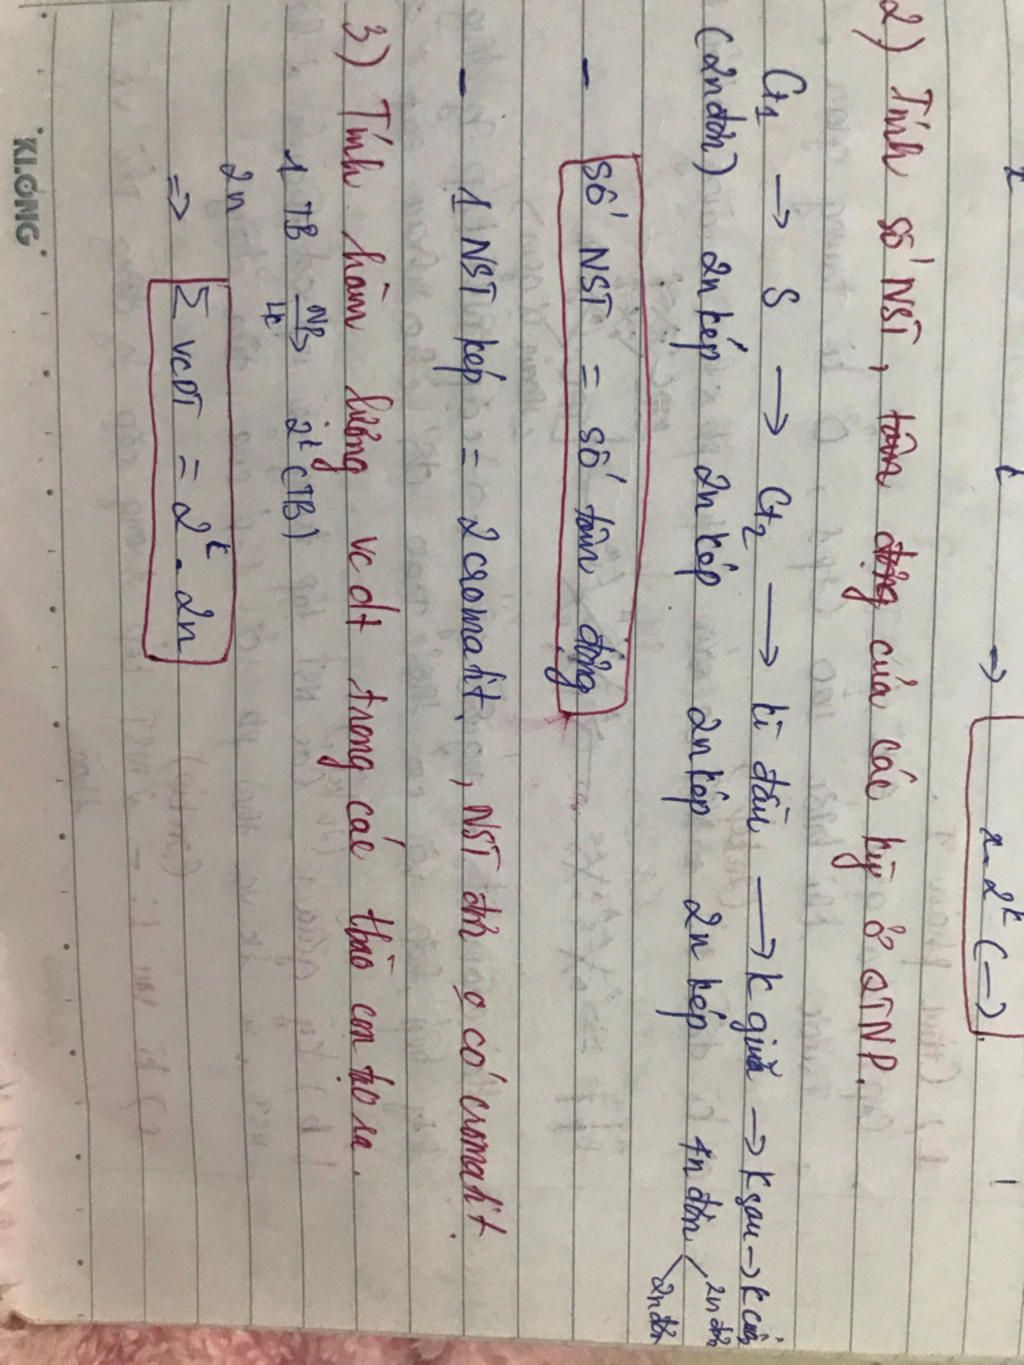 x.2ᵏ (–)
2) Tính số NST, tâm động của các kỳ ở QTNP.
Ct₁ → S → Ct₂ → kì đầu → K giữa → K sau → K cuối
(2n đơn) 2n kép 2n kép 2n kép 2n kép 4n đơn 2n đơn
2n đơn
- Số NST = số tâm động
- 1 NST kép = 2 cromatit, NST đơn 0 có cromatit.
3) Tính hàm lượng vcdt trong các tbào con tạo ra.
1 TB NP→ 2ᵏ (TB)
2n
⇒ Σ VCDT = 2ᵏ. 2n
KLONG